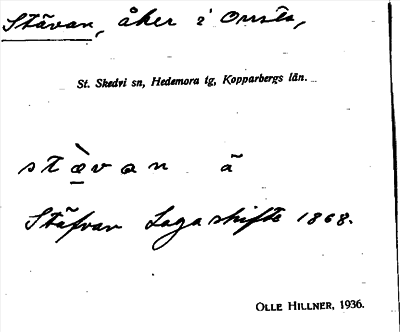 Stävan, åker i Onsta,
St. Skedvi sn, Hedemora tg, Kopparbergs län.
stæ̀van ä
Stäfvan Lagaskifte 1868.
OLLE HILLNER, 1936.